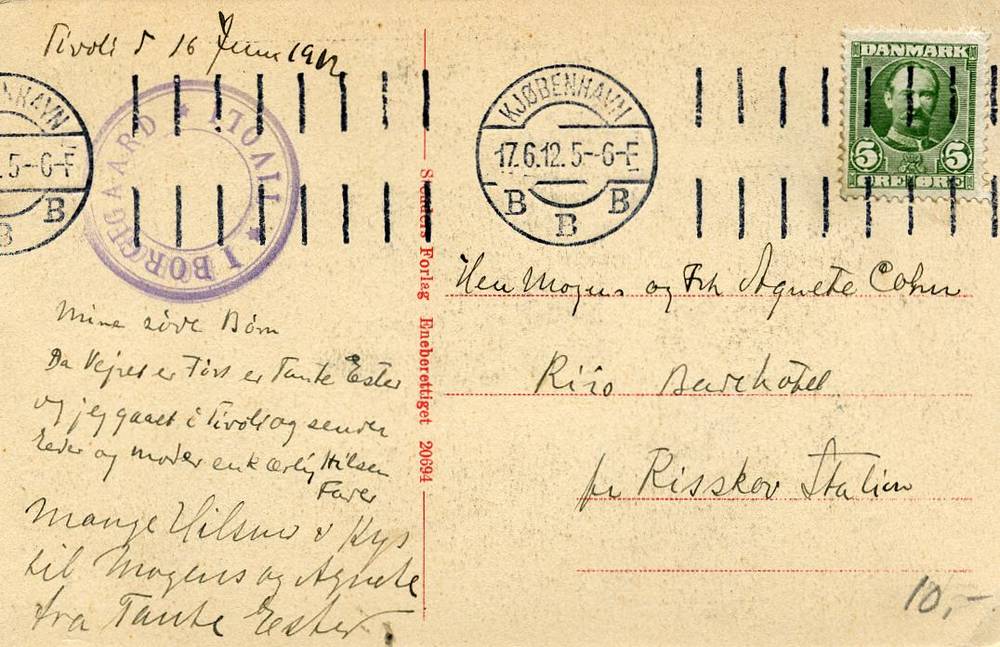 Tivoli d 16 Juni 1912
KJØBENHAVN
17.6.12.5-6-F
B B B
5-6-F
B
DANMARK
5 5
ØRE ØRE
I BORGGAARD ★ TIVOLI ★
Stenders Forlag Eneberettiget 20694
Mine søde Børn
Da Vejret er Tørt er Tante Ester
og jeg gaaet i Tivoli og sender
Eder og moder en kærlig Hilsen
Faver
Mange Hilsner & Kys
til Mogens og Agnete
fra Tante Ester
Herr Mogens og Frk Agnete Cohn
Riso Badehotel
pr Risskov Station
10,-